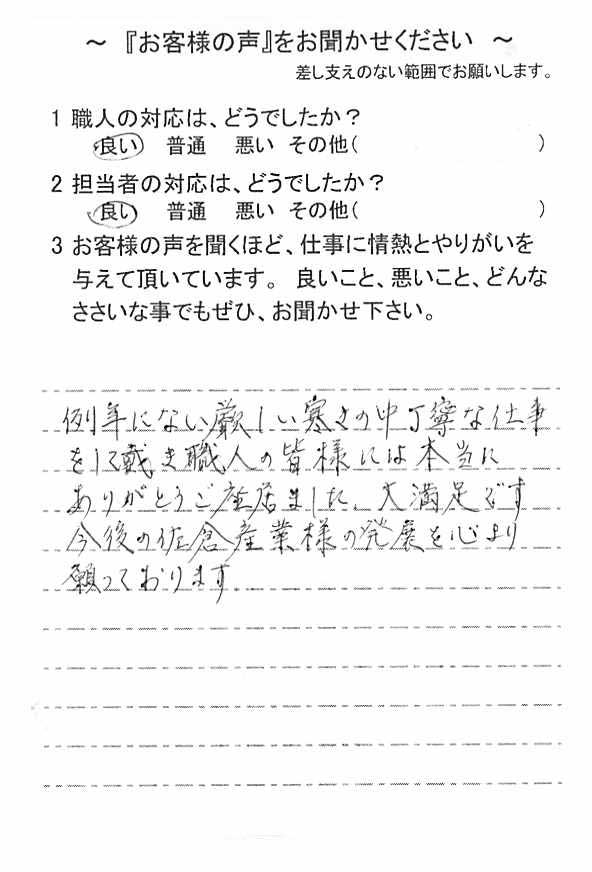 ～ 『お客様の声』をお聞かせください ～
差し支えのない範囲でお願いします。
1 職人の対応は、どうでしたか？
良い 普通 悪い その他( )
2 担当者の対応は、どうでしたか？
良い 普通 悪い その他( )
3 お客様の声を聞くほど、仕事に情熱とやりがいを
与えて頂いています。 良いこと、悪いこと、どんな
ささいな事でもぜひ、お聞かせ下さい。
例年にない厳しい寒さの中丁寧な仕事
をして戴き職人の皆様には本当に
ありがとうご座居ました、大満足です
今後の佐倉産業様の発展を心より
願っております